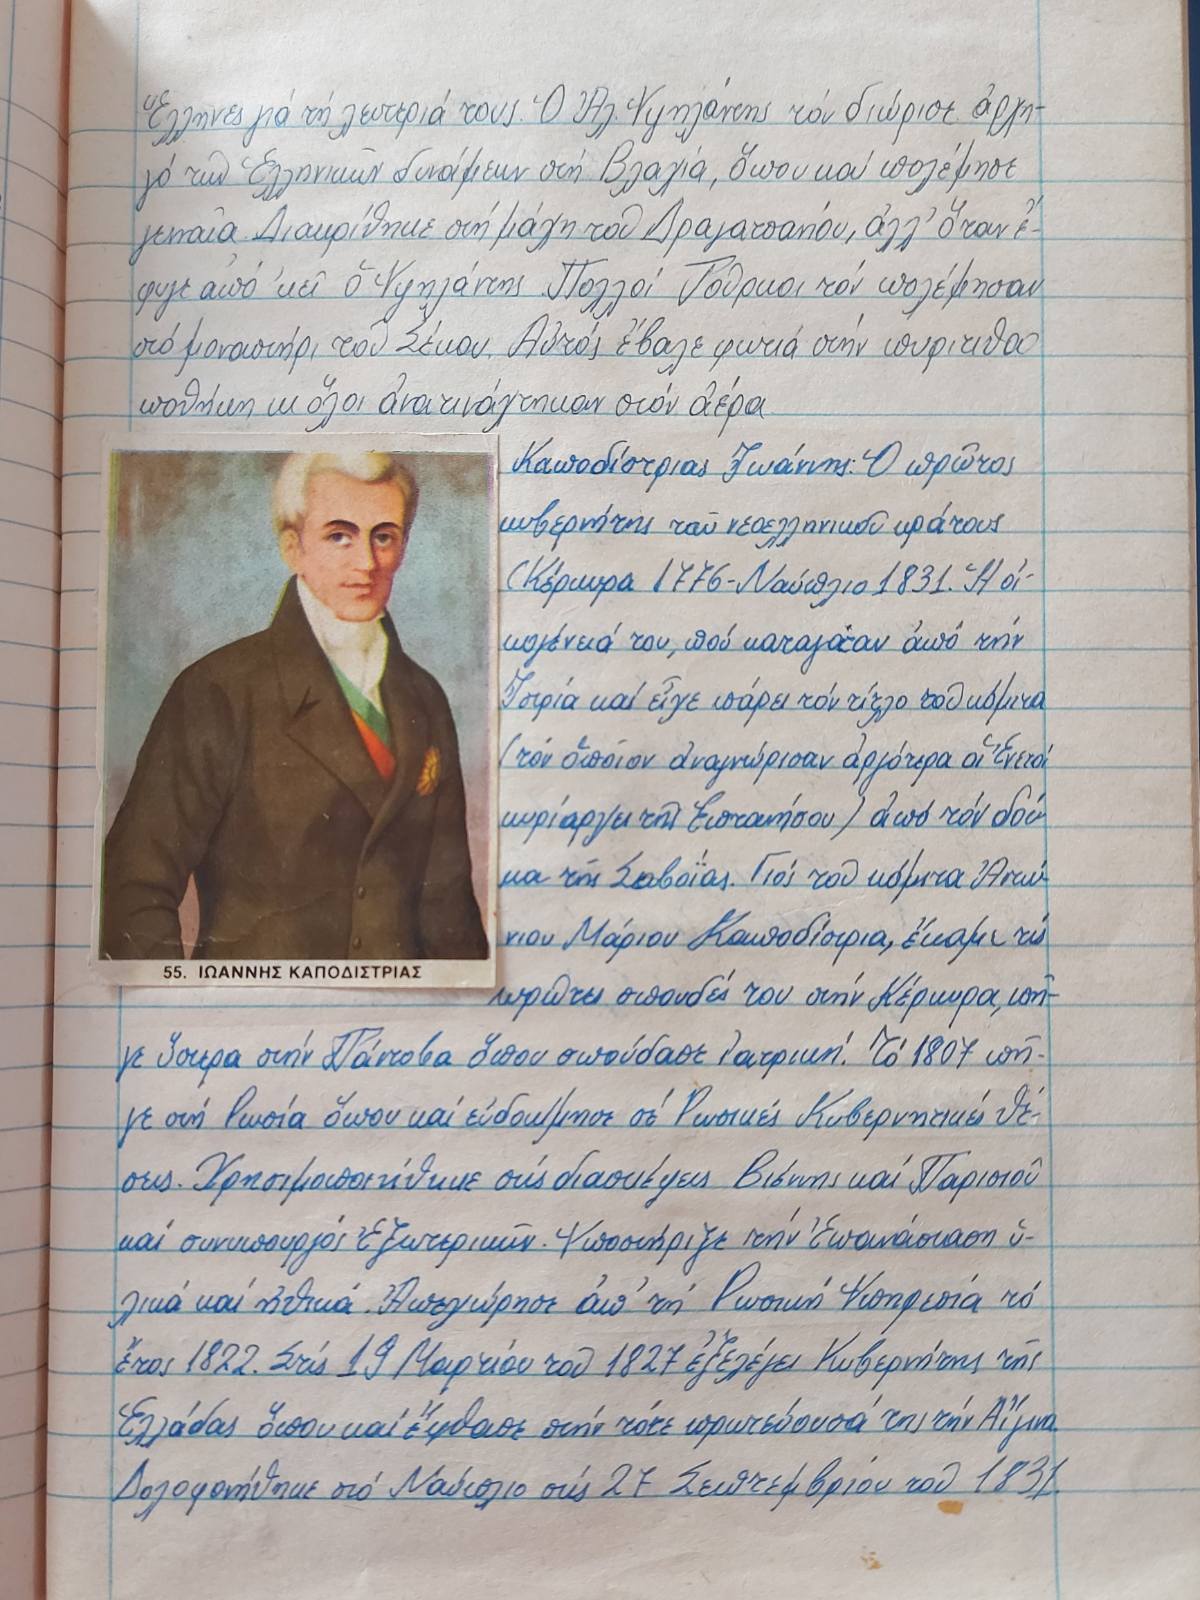 Ἕλληνες γιά τή λευτεριά τους. Ὁ Ἀλ. Ὑψηλάντης τόν διώρισε ἀρχη-
γό τῶν Ἑλληνικῶν δυνάμεων στή Βλαχία, ὅπου καί πολέμησε
γενναῖα. Διακρίθηκε στή μάχη τοῦ Δραγατσανίου, ἀλλ' ὅταν ἔ-
φυγε ἀπό 'κεῖ ὁ Ὑψηλάντης. Πολλοί Τοῦρκοι τόν πολέμησαν
στό μοναστήρι τοῦ Σέκου. Αὐτός ἔβαλε φωτιά στήν πυριτιδα
ποθήκη κι ὅλοι ἀνατινάχτηκαν στόν ἀέρα
Καποδίστριας Ἰωάννης: Ὁ πρῶτος
κυβερνήτης τοῦ νεοελληνικοῦ κράτους
(Κέρκυρα 1776-Ναύπλιο 1831. Ἡ οἰ-
κογένειά του, πού καταγόταν ἀπό τήν
Ἰστρία καί εἶχε πάρει τόν τίτλο τοῦ κόμιτα
(τόν ὁποῖον ἀναγνώρισαν ἀργότερα οἱ Ἐνετοί
κυρίαρχοι τῆς Ἑπτανήσου) ἀπό τόν δού
κα τῆς Σαβοΐας. Γιός τοῦ κόμιτα Ἀντω
νιου Μάριου Καποδίστρια, ἔκαμε τίς
πρῶτες σπουδές του στήν Κέρκυρα, πῆ-
γε ὕστερα στήν Πάντοβα ὅπου σπούδασε Ἰατρική. Τό 1807 πῆ-
γε στή Ρωσία ὅπου καί εὐδοκίμησε σέ Ρωσικές Κυβερνητικές θέ-
σεις. Χρησιμοποιήθηκε στίς διασκέψεις Βιέννης καί Παρισιοῦ
καί συνυπουργός Ἐξωτερικῶν. Ὑποστήριξε τήν Ἐπανάσταση ὑ-
λικά καί ἠθικά. Ἀπεχώρησε ἀπ' τή Ρωσική Ὑπηρεσία τό
ἔτος 1822. Στίς 19 Μαρτίου τοῦ 1827 ἐξελέγει Κυβερνήτης τῆς
Ἑλλάδας ὅπου καί ἔφθασε στήν τότε πρωτεύουσά της τήν Αἴγινα.
Δολοφονήθηκε στό Ναύπλιο στίς 27 Σεπτεμβρίου τοῦ 1831.
55. ΙΩΑΝΝΗΣ ΚΑΠΟΔΙΣΤΡΙΑΣ